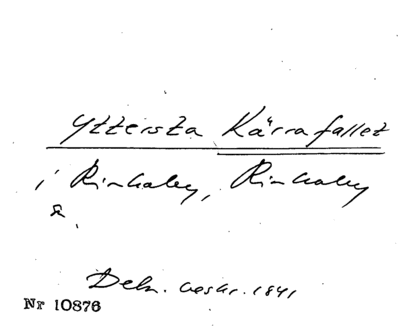 Yttersta Kärrafallet
i Rinkaby, Rinkaby
s.
Deln. beskr. 1841
Nr 10876